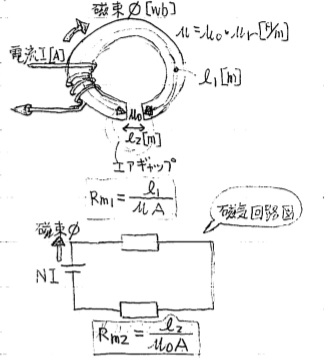 磁束Φ[Wb]
μ=μ₀・μr[H/m]
電流I[A]
l₁[m]
μ₀
l₂[m]
エアギャップ
Rm₁ = l₁/μA
磁気回路図
磁束Φ
NI
Rm₂ = l₂/μ₀A